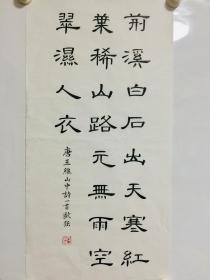 荊溪白石出天寒紅
葉稀山路元無雨空
翠濕人衣
唐王維山中詩一首